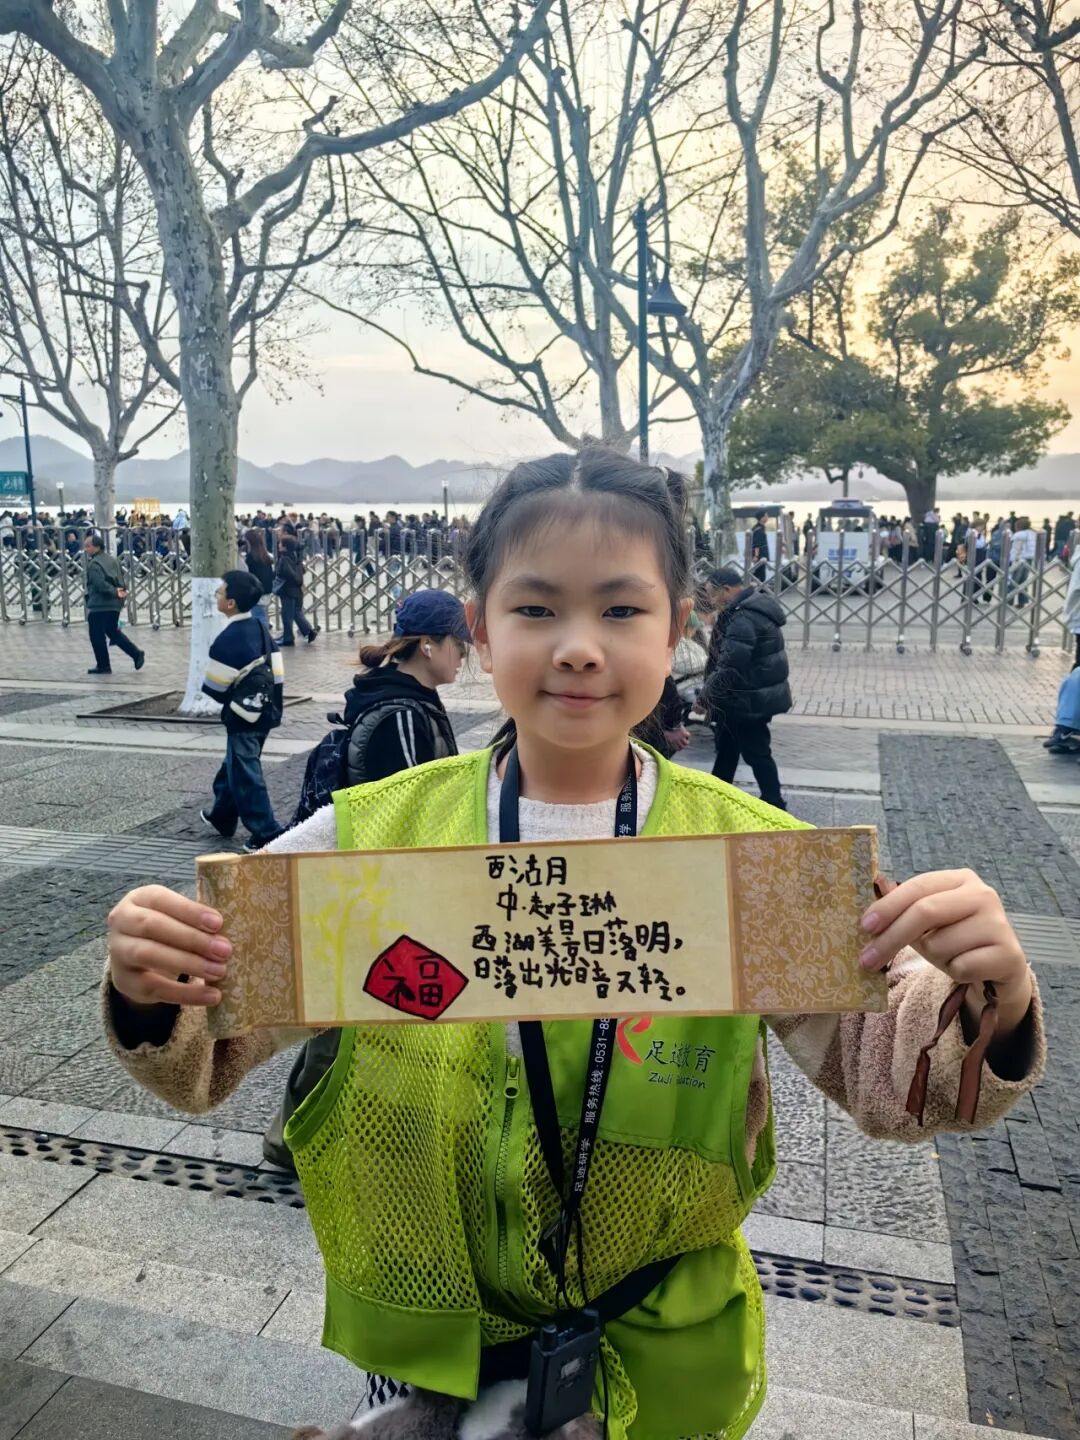 西沽月
中.赵子琳
西湖美景日落明，
日落出光谙又轻。
福
足迹教育
服务热线:0531-88
足迹研学
服务热